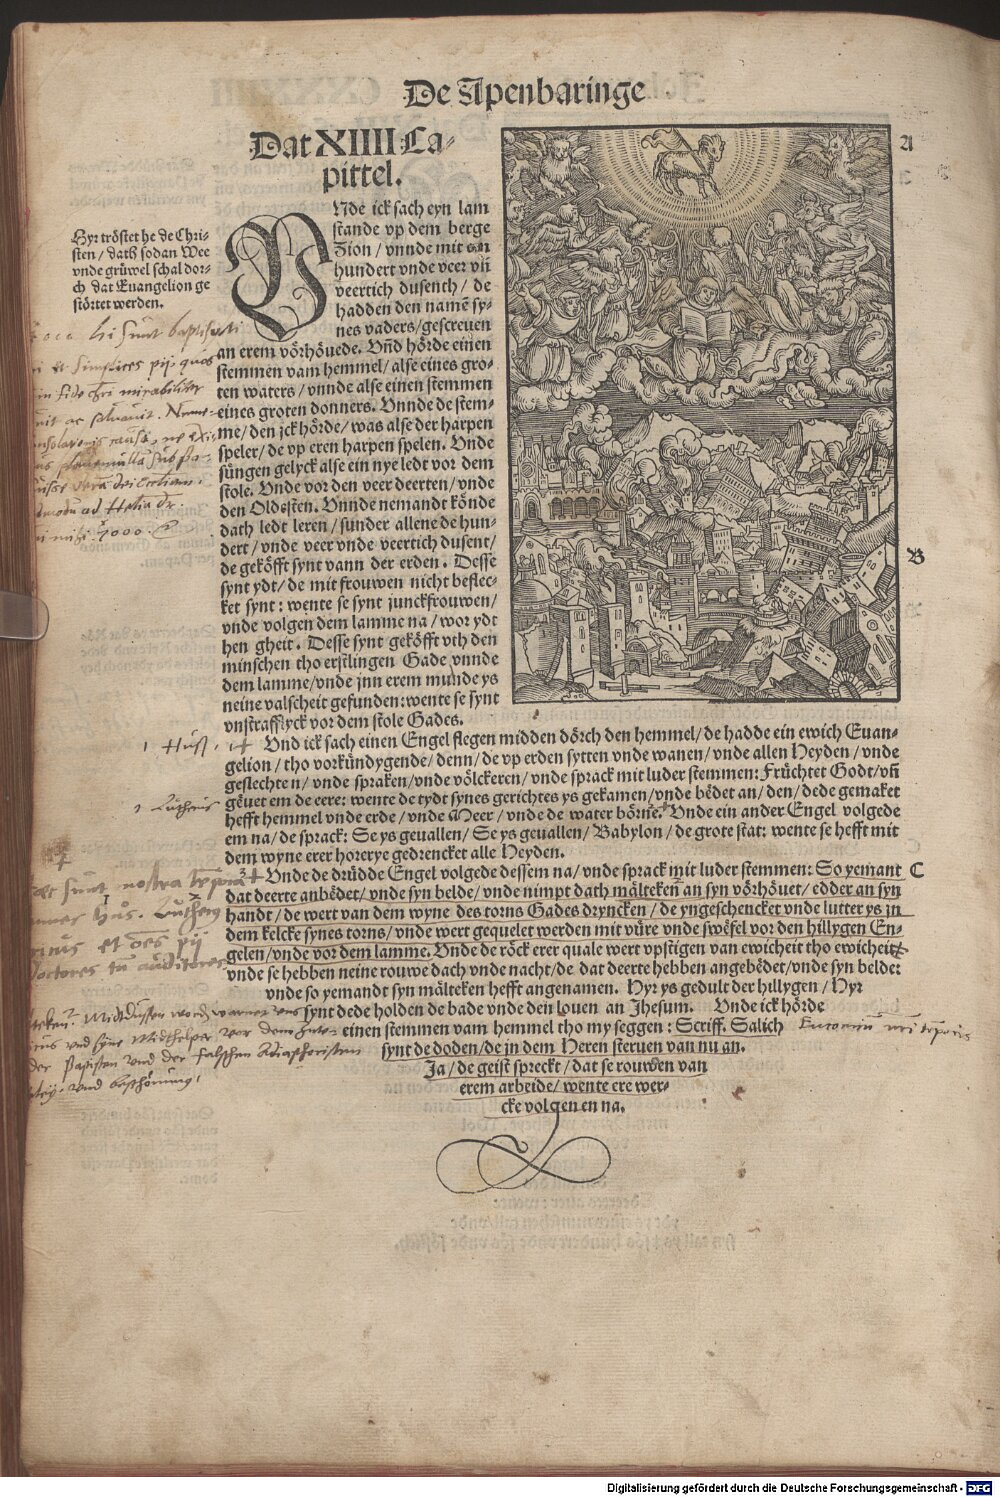 De Apenbaringe
Dat XIIII Ca-
pittel.
A
Hyr tröstet he de Chri-
sten / dath sodan Wee
vnde grüwel schal dor-
ch dat Euangelion ge
störtet werden.
VNde ick sach eyn lam
stande vp dem berge
Zion / vnnde mit em
hundert vnde veer vñ
veertich dusenth / de
hadden den namē sy-
nes vaders / gescreuen
an erem vörhöuede. Vñd hörde einen
stemmen vam hemmel / alse eines gro-
ten waters / vnnde alse einen stemmen
eines groten donners. Vnnde de stem-
me / den jck hörde / was alse der harpen
speler / de vp eren harpen spelen. Vnde
süngen gelyck alse ein nye ledt vor dem
stole. Vnde vor den veer deerten / vnde
den Oldesten. Vnnde nemandt könde
dath ledt leren / sunder allene de hun-
dert / vnde veer vnde veertich dusent /
de geköfft synt vann der erden. Desse
synt ydt / de mit frouwen nicht beflec-
ket synt : wente se synt junckfrouwen /
vnde volgen dem lamme na / wor ydt
hen gheit. Desse synt geköfft vth den
minschen tho erstlingen Gade vnnde
dem lamme / vnde jnn erem munde ys
neine valscheit gefunden : wente se synt
vnstrafflyck vor dem stole Gades.
B
hi sunt baptisati
et simplices pij quos
in fide mirabiliter
ac saluauit.
ad
7000.
1 Huß. 1+
Vnd ick sach einen Engel flegen midden dörch den hemmel / de hadde ein ewich Euan-
gelion / tho vorkündygende / denn / de vp erden sytten vnde wanen / vnde allen Heyden / vnde
geslechten / vnde spraken / vnde völckeren / vnde sprack mit luder stemmen : Früchtet Godt / vñ
gëuet em de eere : wente de tydt synes gerichtes ys gekamen / vnde bëdet an / den / dede gemaket
hefft hemmel vnde erde / vnde Meer / vnde de water börne. Vnde ein ander Engel volgede
em na / de sprack : Se ys geuallen / Se ys geuallen / Babylon / de grote stat : wente se hefft mit
dem wyne erer horerye gedrencket alle Heyden.
Lutherus
Vnde de drüdde Engel volgede dessem na / vnde sprack mit luder stemmen : So yemant C
dat deerte anbëdet / vnde syn belde / vnde nimpt dath mälteken an syn vörhöuet / edder an syn
handt / de wert van dem wyne des torns Gades dryncken / de yngeschencket vnde lutter ys jn
dem kelcke synes torns / vnde wert gequelet werden mit vüre vnde swëfel vor den hillygen En-
gelen / vnde vor dem lamme. Vnde de röck erer quale wert vpstigen van ewicheit tho ewicheit /
vnde se hebben neine rouwe dach vnde nacht / de dat deerte hebben angebëdet / vnde syn belde :
vnde so yemandt syn mälteken hefft angenamen. Hyr ys gedult der hillygen / Hyr
synt dede holden de bade vnde den louen an Jhesum. Vnde ick hörde
einen stemmen vam hemmel tho my seggen : Scriff. Salich
synt de doden / de jn dem Heren steruen van nu an.
Ja / de geist spreckt / dat se rouwen van
erem arbeide / wente ere wer-
cke volgen en na.
sunt nostra
Hus. Luthery
et oēs pij
doctores
vnd syne Midthelper vor dem
der Papisten vnd der falschen Adiaphoristen
vnd
Digitalisierung gefördert durch die Deutsche Forschungsgemeinschaft - DFG